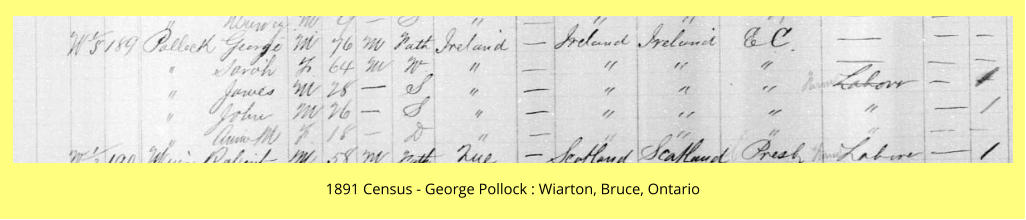 M — S "
W 1/5 189 Pollock George M 76 M Fath Ireland — Ireland Ireland E C. — — —
" Sarah F 64 M W " — " " " — — —
" James M 28 — S " — " " " Labour — 1
" John M 26 — S " — " " " " — 1
" Annie M F 18 — D " — " " " " — —
190 Robert M 58 M Fath Que — Scotland Scotland Presb Labore — 1
1891 Census - George Pollock : Wiarton, Bruce, Ontario